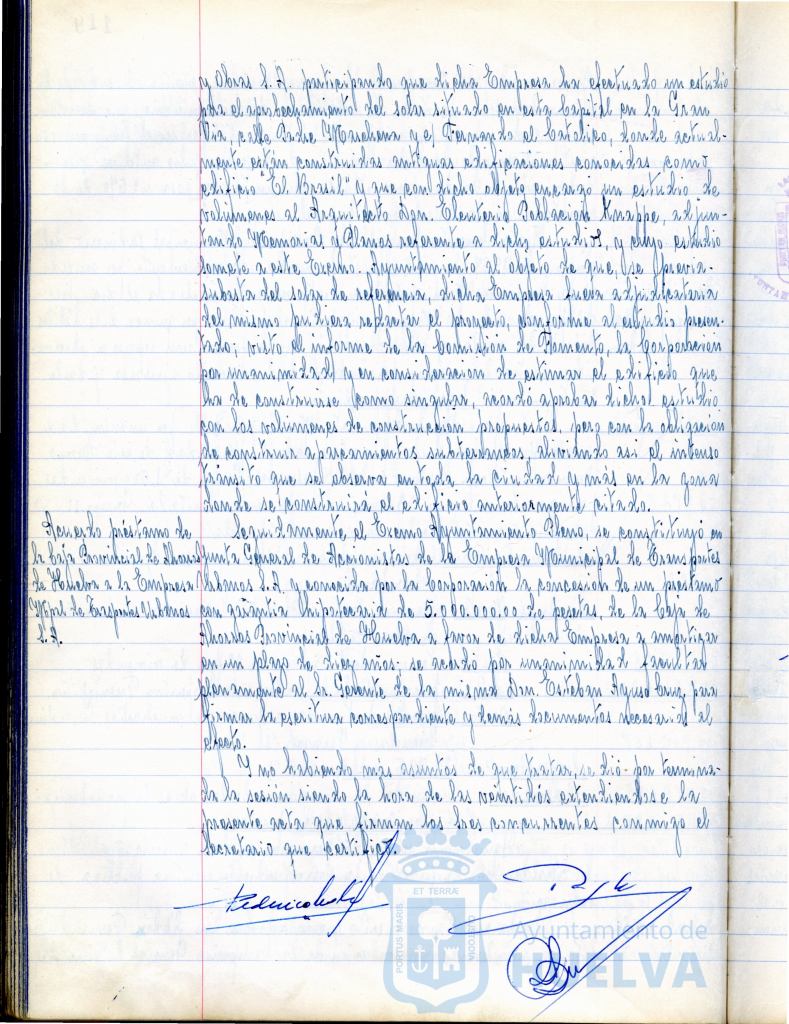 y Obras S.A. participando que dicha Empresa ha efectuado un estudio
para el aprobechamiento del solar situado en esta Capital en la Gran
Via, calle Padre Marchena y c/ Fernando el Catolico, donde actual-
mente están construidas antiguas edificaciones conocidas como
edificio "El Brasil" y que con dicho objeto encargó un estudio de
volúmenes al Arquitecto Don. Eleuterio Población Knappe, adjun-
tando Memorias y Planos referente a dicho estudios, y cuyo estudio
somete a este Excmo. Ayuntamiento al objeto de que, se previa
subasta del solar de referencia, dicha Empresa fuera adjudicataria
del mismo pudiera redactar el proyecto, conforme al estudio presen-
tado; visto el informe de la Comisión de Fomento, la Corporación
por unanimidad y en consideración de estimar el edificio que
ha de construirse como singular, acordó aprobar dicho estudio
con los volumenes de construcción propuestos, pero con la obligación
de construir aparcamientos subterraneos, aliviando asi el intenso
tránsito que se observa en toda la ciudad y más en la zona
donde se construirá el edificio anteriormente citado.
Acuerdo préstamo de
la Caja Provincial de Ahorros
de Huelva a la Empresa
Mpal de Trasportes Urbanos
S.A.
Seguidamente el Excmo Ayuntamiento Pleno, se constituyó en
Junta General de Accionistas de la Empresa Municipal de Transportes
Urbanos S.A. y conocida por la Corporación la concesión de un préstamo
con garantia Chipotecaria de 5.000.000,00 de pesetas, de la Caja de
Ahorros Provincial de Huelva a favor de dicha Empresa y amortizar
en un plazo de diez años; se acordó por unanimidad facultar
plenamente al Sr. Gerente de la misma Don. Esteban Ayuso Cruz, para
firmar la escritura correspondiente y demás documentos necesarios al
efecto.
Y no habiendo más asuntos de que tratar, se dió por termina-
da la sesión siendo la hora de las veintidós extendiendose la
presente acta que firman los Sres concurrentes conmigo el
Secretario que certifico.
PORTUS MARIS ET TERRÆ CUSTODIA
Ayuntamiento de
HUELVA